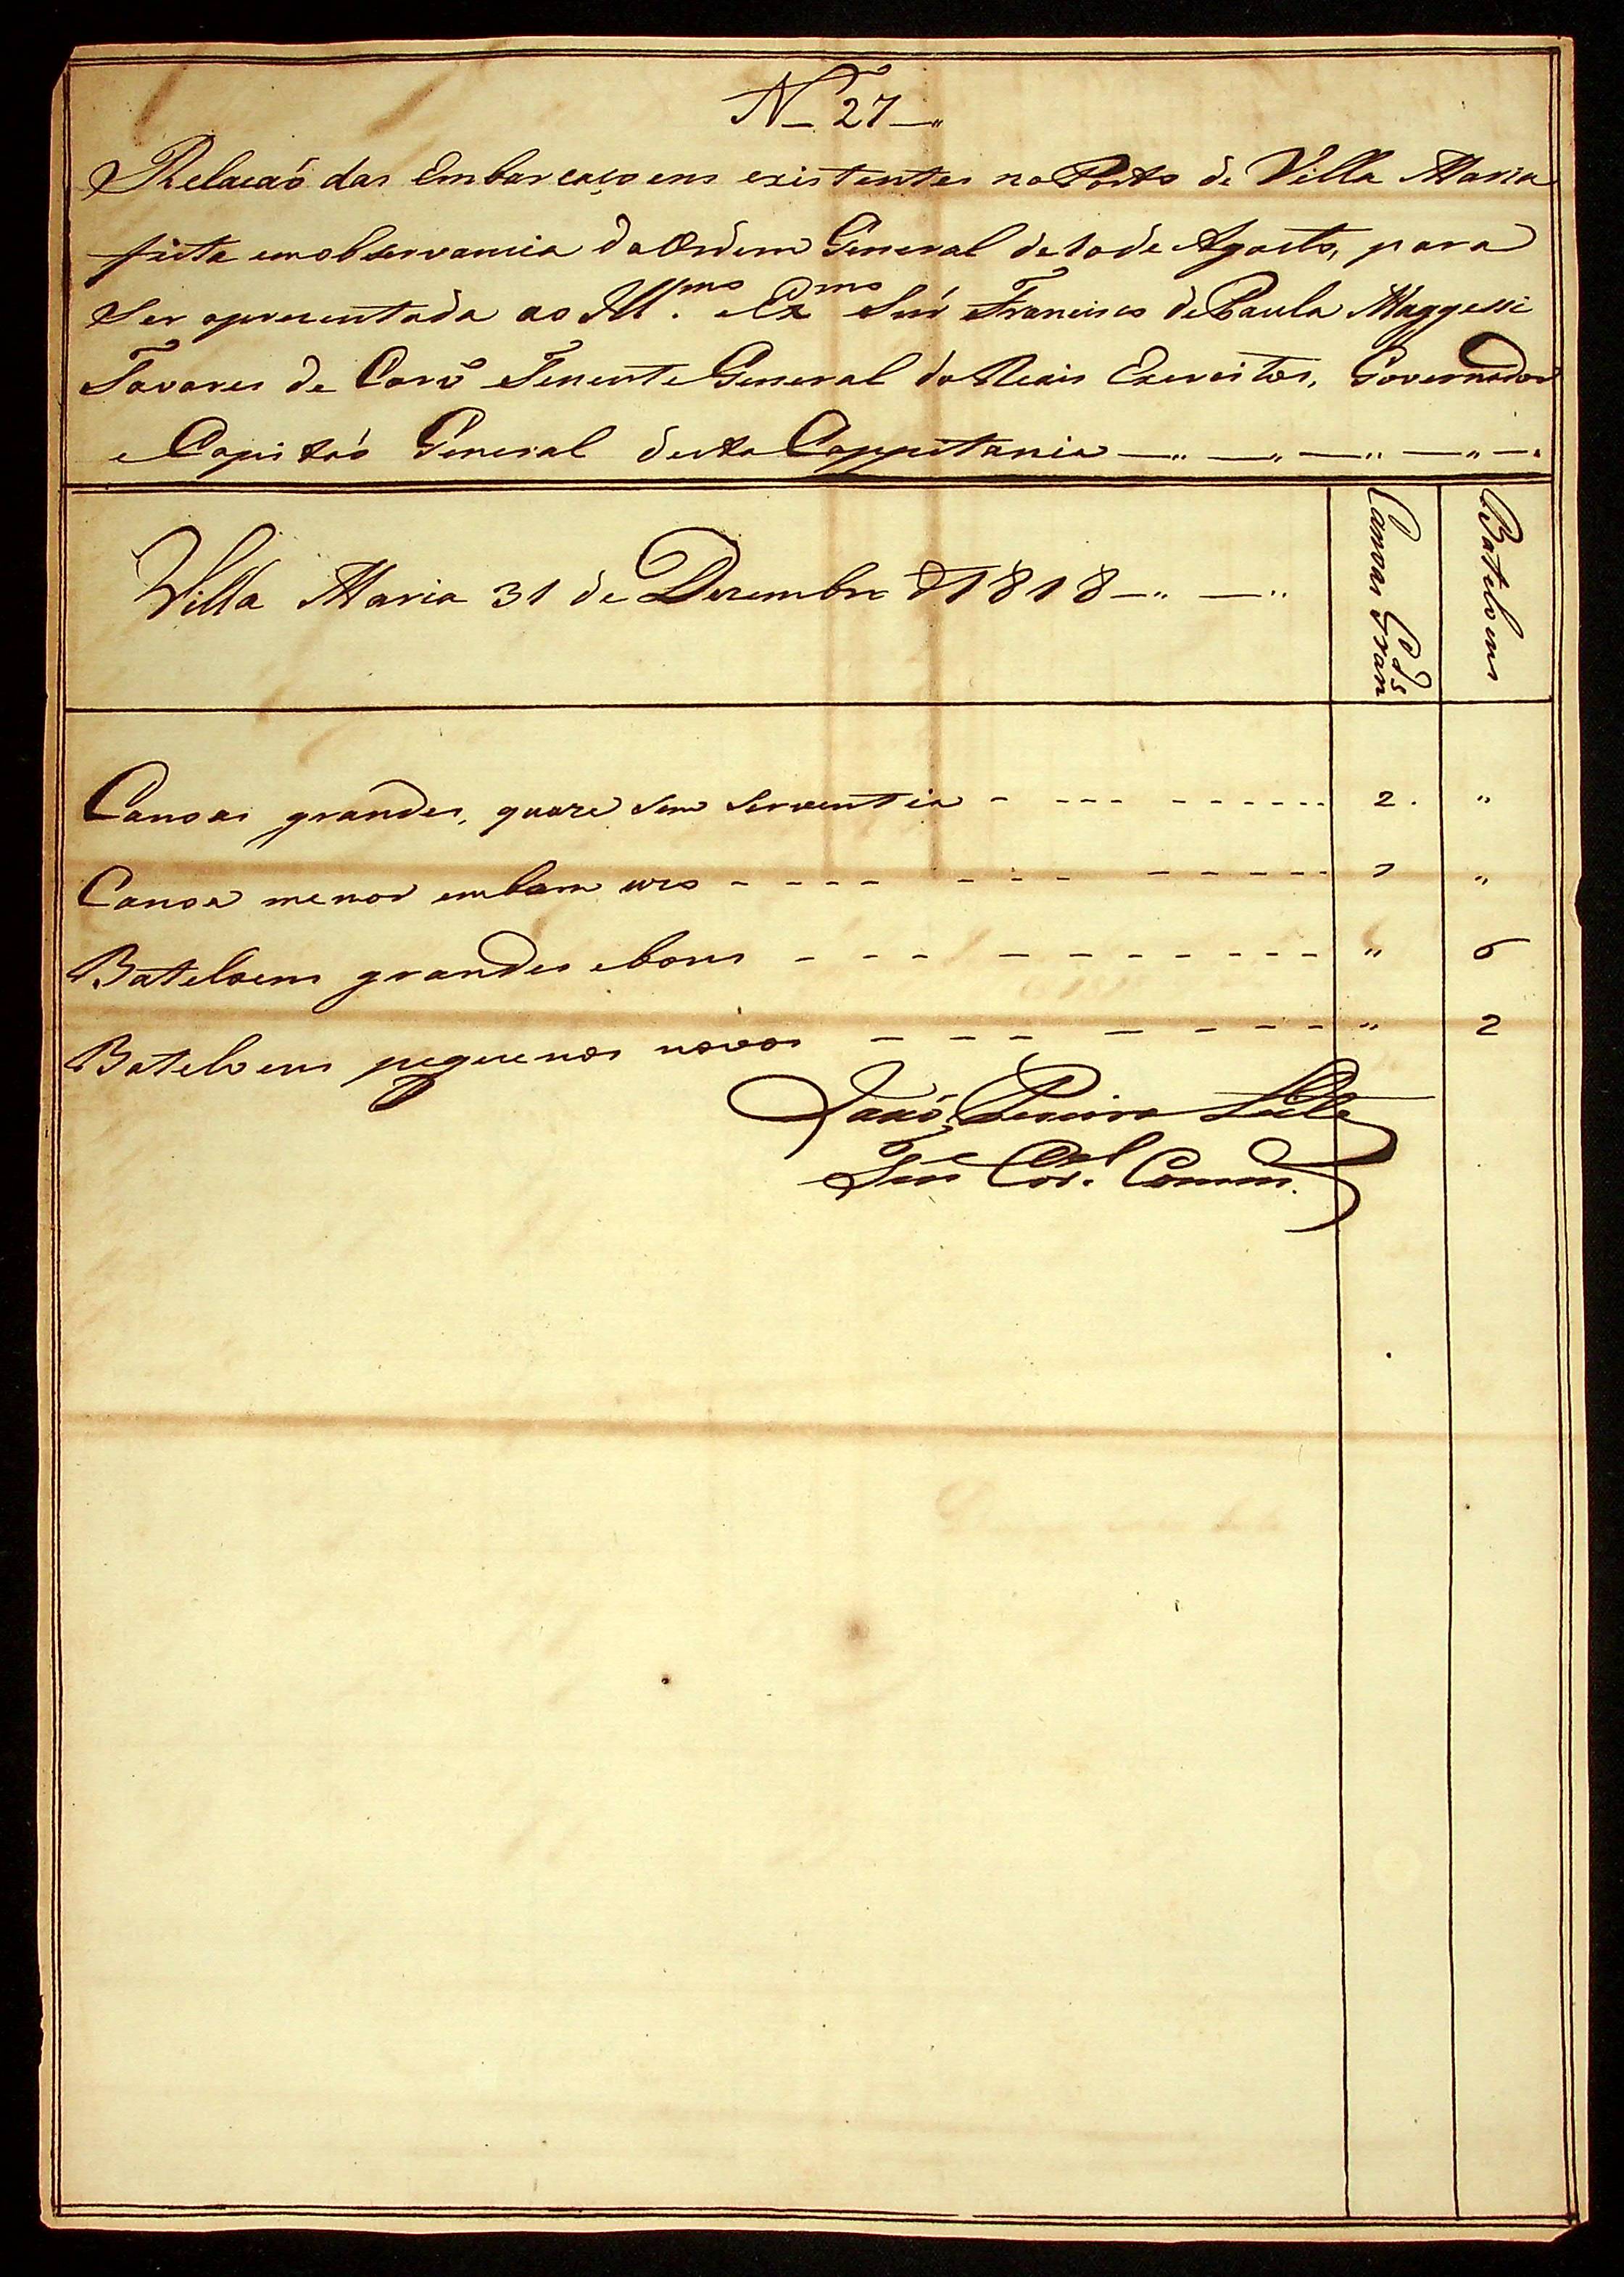 N 27
Relacaó das Embarcaçoens existentes no Porto de Villa Maria
feita em observancia da Ordem General de 10 de Agosto, para
ser aprezentada ao Ill.mo e Ex.mo Snr Francisco de Paula Maggessi
Tavares de Carv.o Tenente General dos Reais Exercitos, Governador
e Capitaó General desta Cappitania
Villa Maria 31 de Dezembro de 1818
Canoas Gran.des
Bateloens
Canoas grandes, quaze sem serventia 2. "
Canoa menor em bam uzo 1 "
Bateloens grandes e bons " 6
Bateloens pequenos novos " 2
Pereira Leite
Ten.e Cor.el Comm.